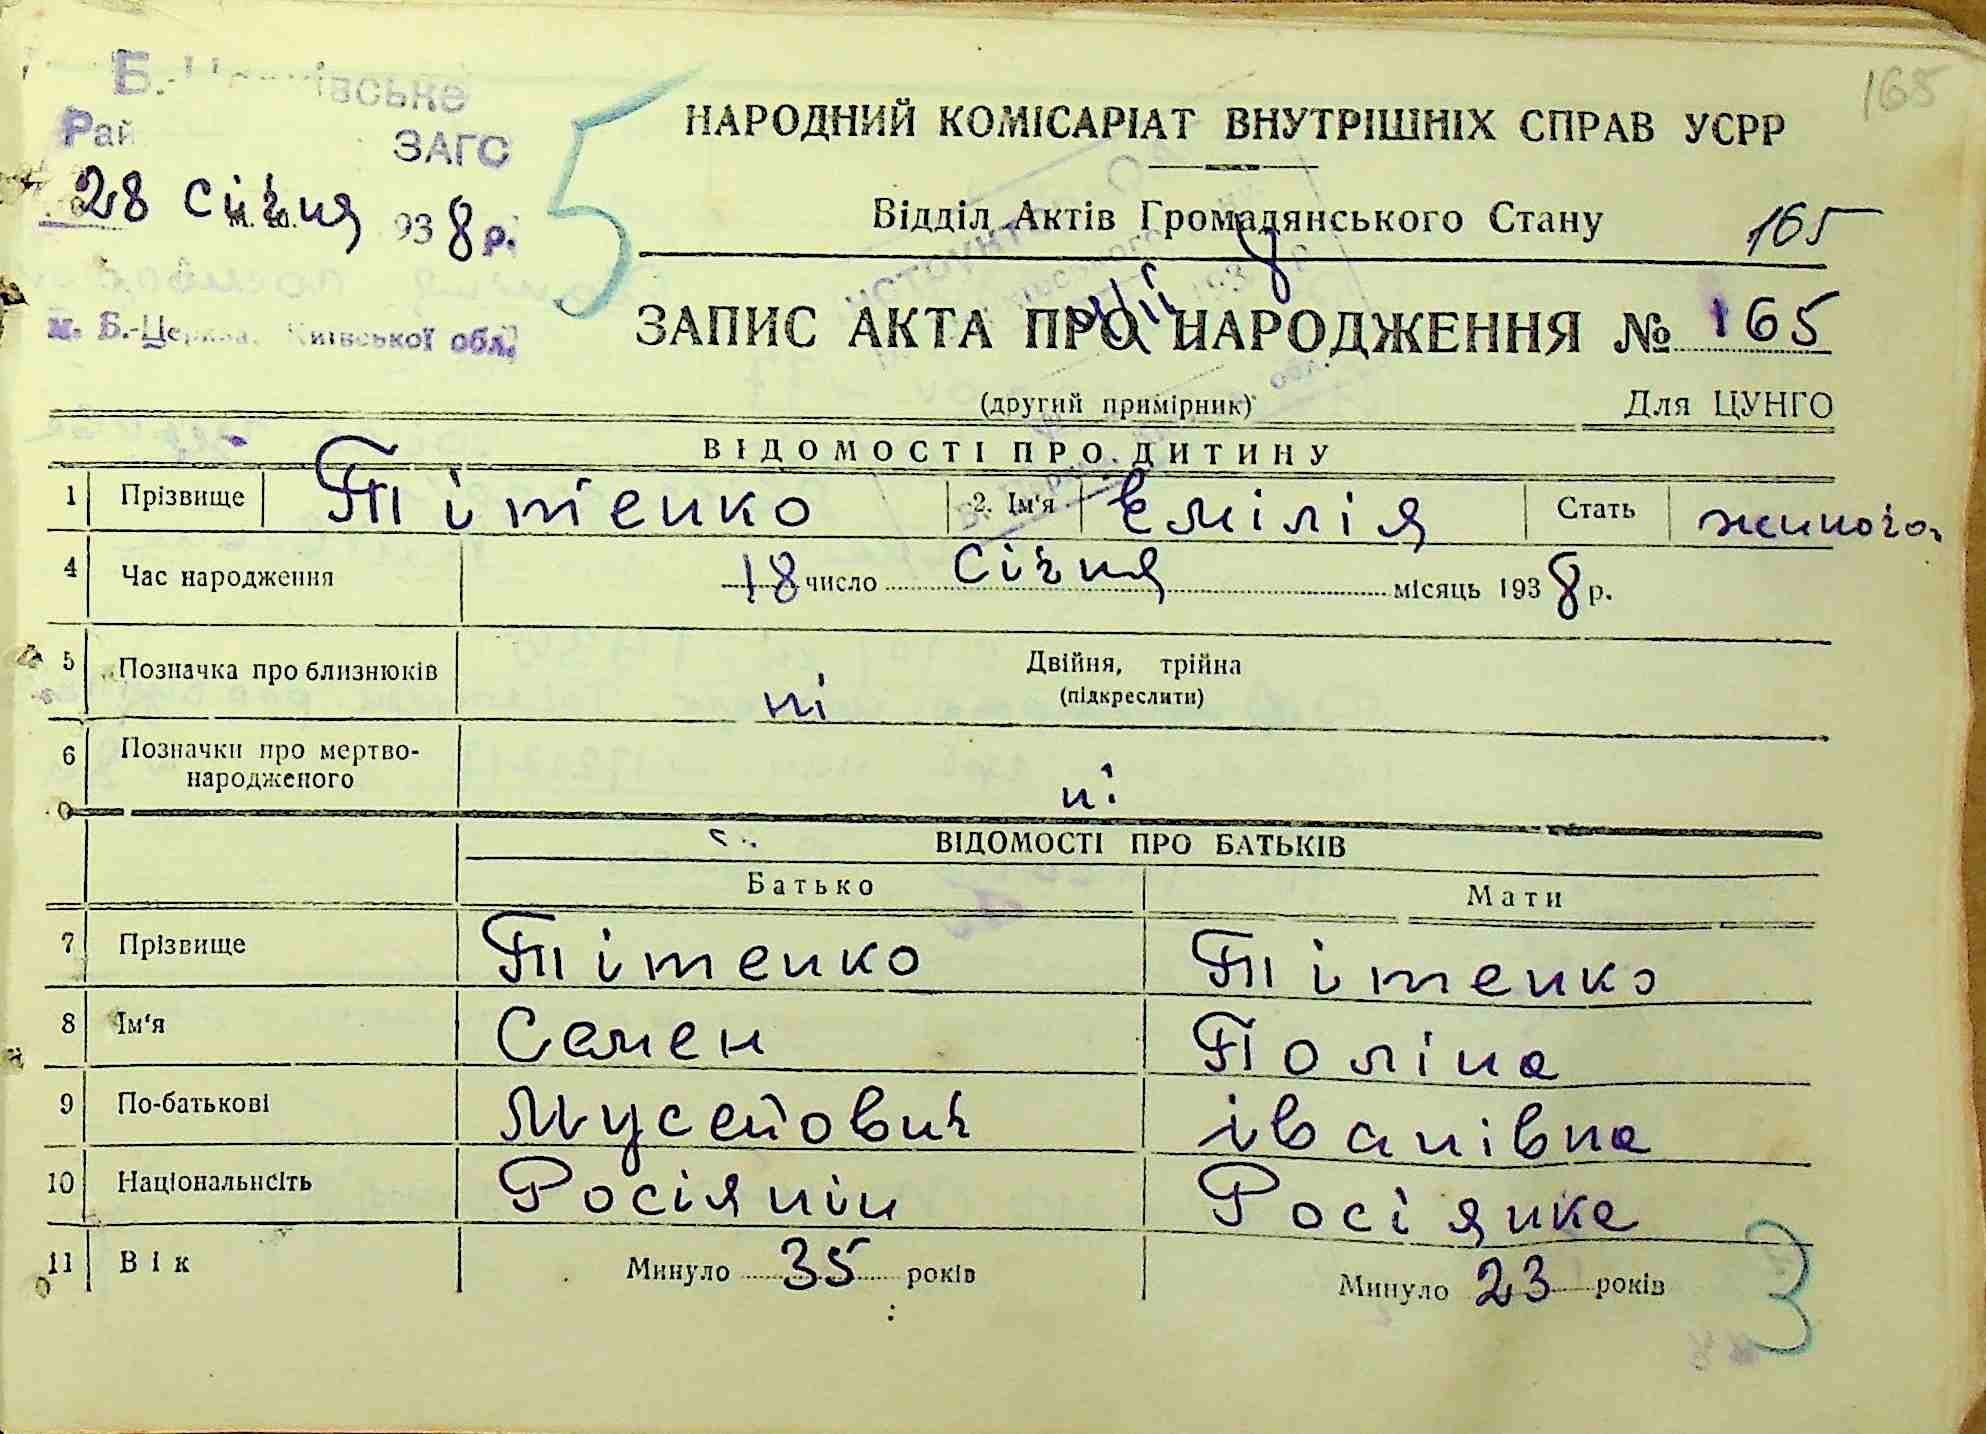 165
Рай ЗАГС
28 січня 1938 р.
м. Б.-Церква, Київської обл.
5
НАРОДНИЙ КОМІСАРІАТ ВНУТРІШНІХ СПРАВ УСРР
Відділ Актів Громадянського Стану 165
ЗАПИС АКТА ПРО НАРОДЖЕННЯ № 165
(другий примірник) Для ЦУНГО
ВІДОМОСТІ ПРО ДИТИНУ
1 Прізвище Тітенко 2. Ім'я Емілія Стать жіноча
4 Час народження 18 число січня місяць 1938 р.
5 Позначка про близнюків ні Двійня, трійна
(підкреслити)
6 Позначки про мертво-
народженого ні
ВІДОМОСТІ ПРО БАТЬКІВ
Батько Мати
7 Прізвище Тітенко Тітенко
8 Ім'я Семен Поліна
9 По-батькові Мусейович Іванівна
10 Національність Росіянін Росіянка
11 Вік Минуло 35 років Минуло 23 років
3